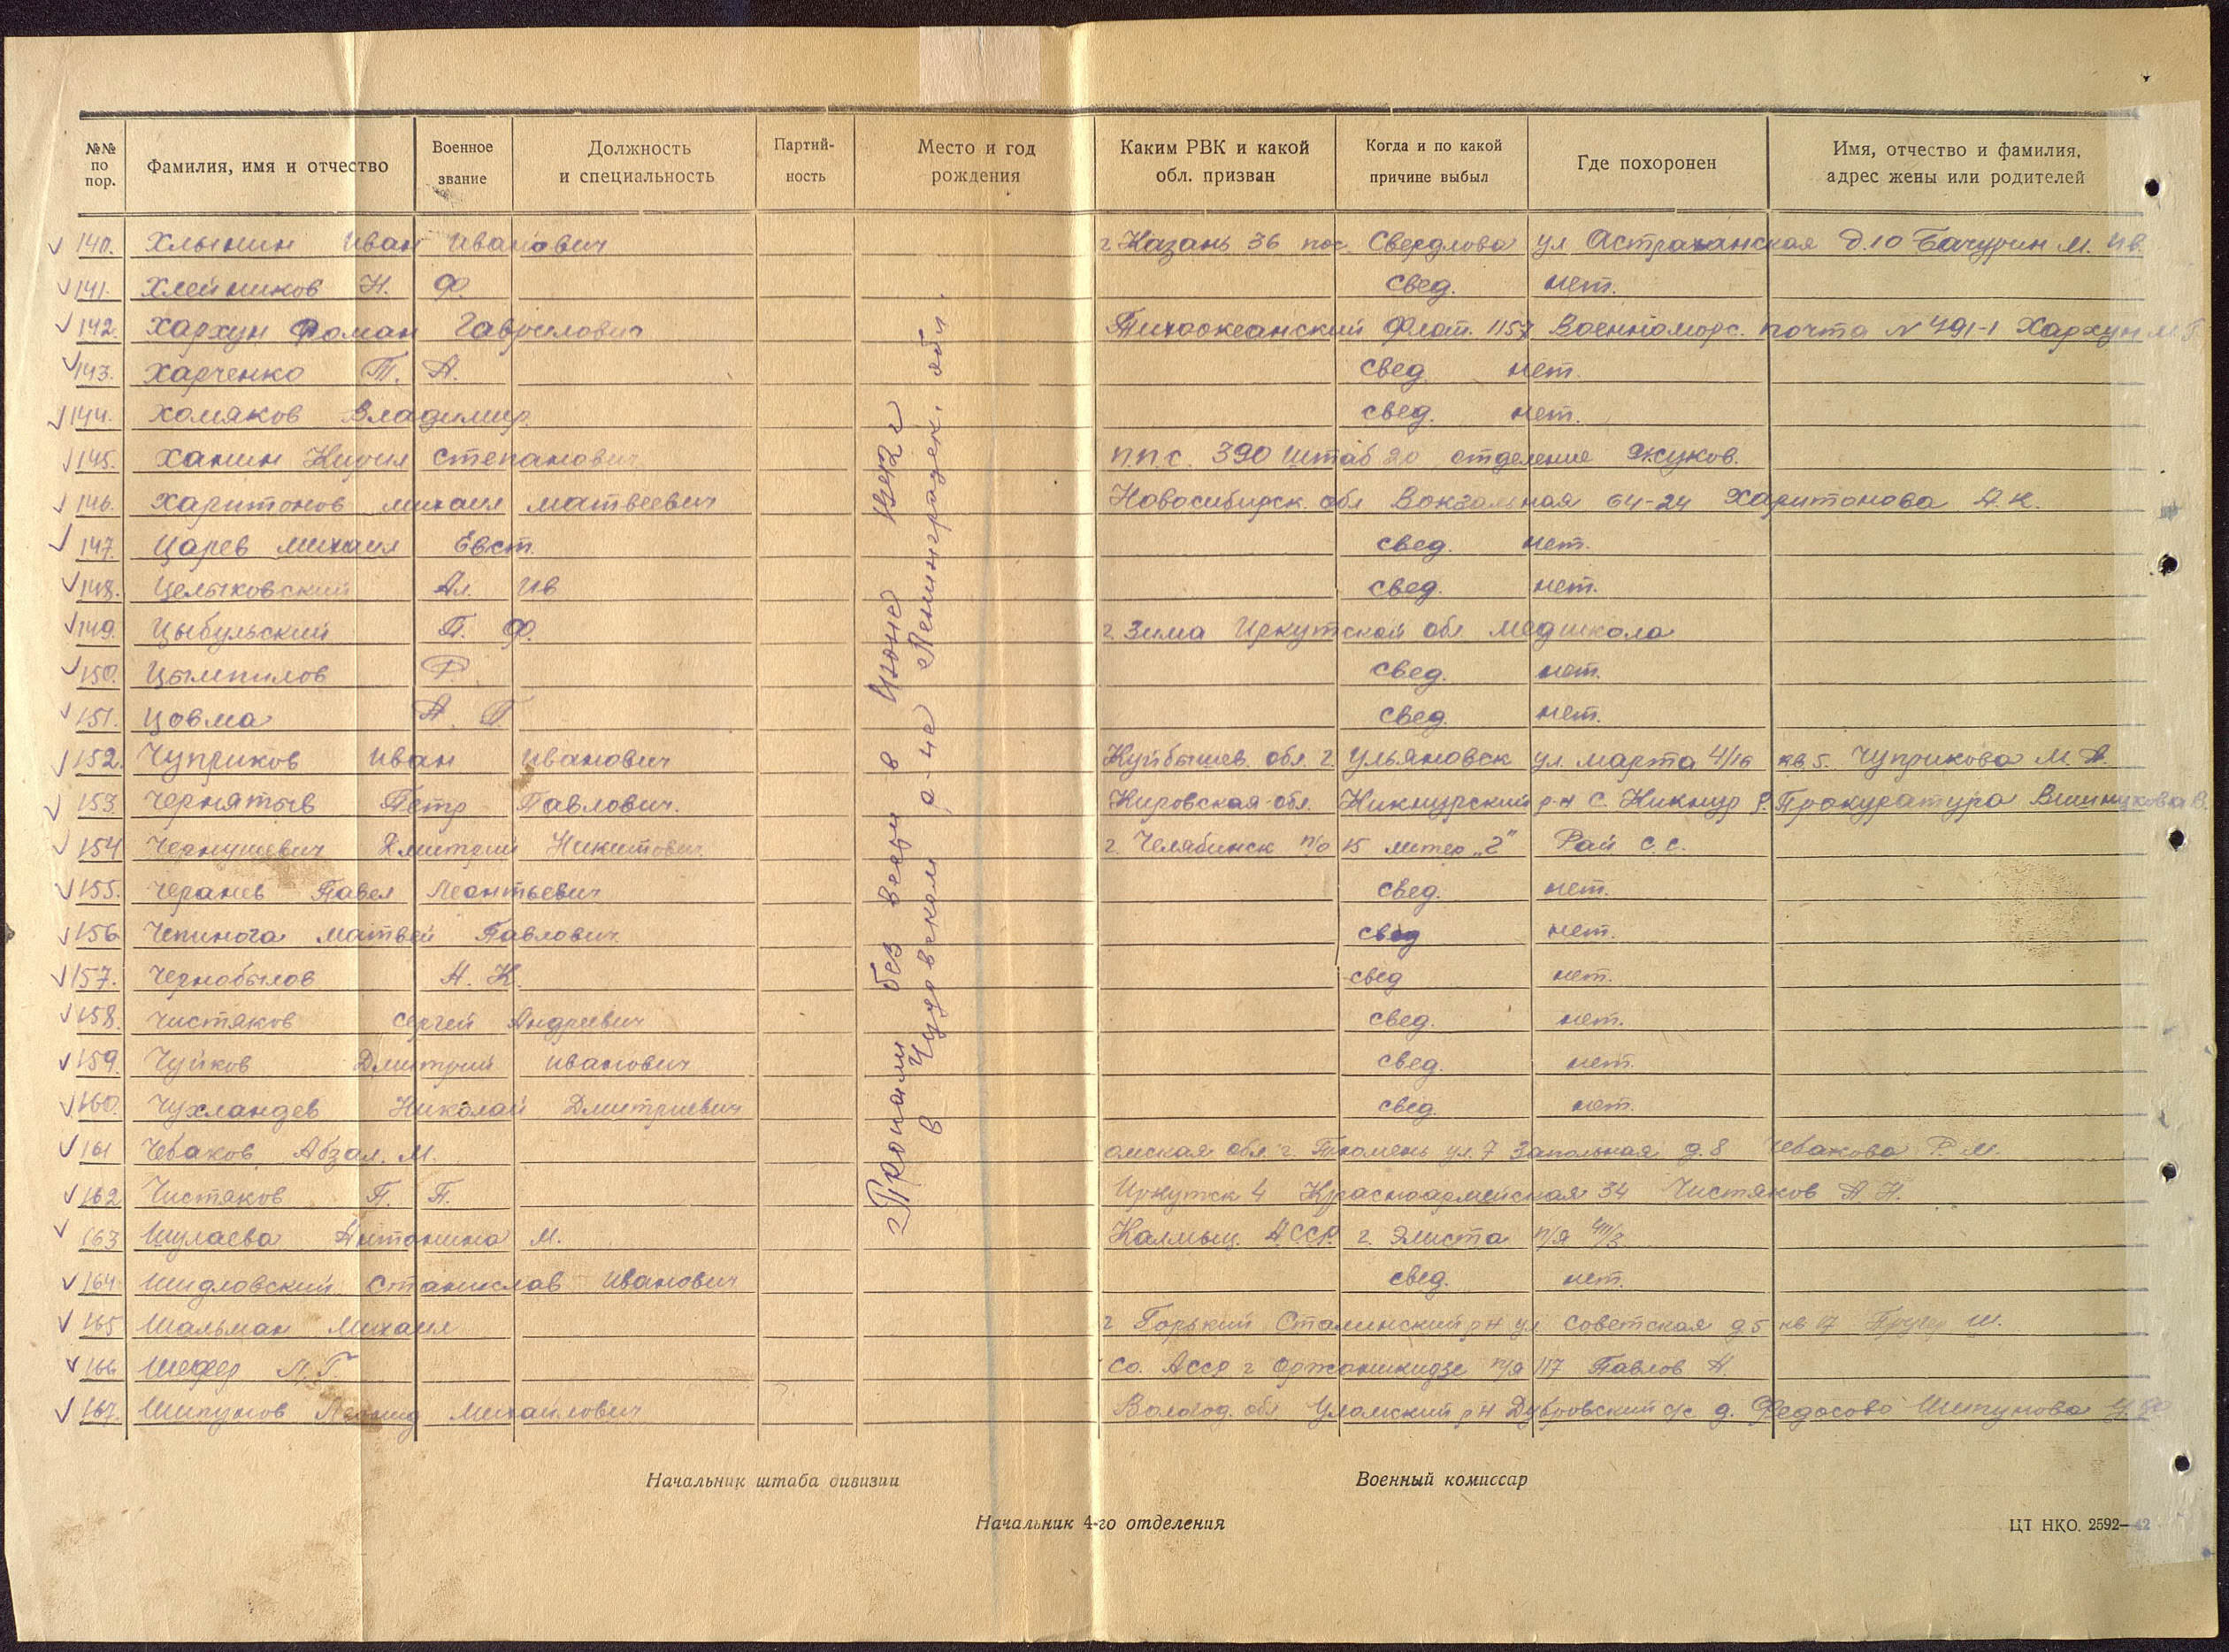 №№ по пор. Фамилия, имя и отчество Военное звание Должность и специальность Партий-ность Место и год рождения Каким РВК и какой обл. призван Когда и по какой причине выбыл Где похоронен Имя, отчество и фамилия, адрес жены или родителей
140. Хлынин Иван Иванович г. Казань 36 пос Свердлова ул Астраханская д.10 Бачурин М. Ив.
141. Хлейников Н. Ф. свед. нет.
142. Хархун Роман Гаврилович Тихоокеанский Флот. 1157 Военноморс. почта N 791-1 Хархун
143. Харченко Т. А. свед. нет.
144. Хомяков Владимир свед. нет.
145. Ханин Кирил Степанович п.п.с. 390 штаб 20 отделение Жуков.
146. Харитонов Михаил Матвеевич Новосибирск. обл Вокзальная 64-24 Харитонова А.К.
147. Царев Михаил Евст. свед. нет.
148. Целыковский Ал. Ив свед. нет.
149. Цыбульский П. Ф. г. Зима Иркутской обл медшкола
150. Цымпилов Р. свед. нет.
151. Цовма А. П. свед. нет.
152. Чуприков Иван Иванович Куйбышев. обл. г. Ульяновск ул. марта 4/16 кв. 5. Чуприкова М. А.
153. Чернятьев Петр Павлович. Кировская обл. Кикнурский р-н с. Кикнур Прокуратура
154 Чернушевич Дмитрий Никитович г. Челябинск п/о 15 литер "г" Рай С.С.
155. Черанев Павел Леонтьевич свед. нет.
156 Чепинога Матвей Павлович свед нет.
157. Чернобылов А. К. свед нет.
158. Чистяков Сергей Андреевич свед. нет.
159. Чуйков Дмитрий Иванович свед. нет.
160. Чухландев Николай Дмитриевич свед. нет.
161 Чебаков Абзал. М. омская обл. г. Тюмень ул. 7 Запольная д. 8 Чебакова Р. М.
162 Чистяков П. П. Иркутск 4 Красноармейская 34 Чистяков А Н.
163 Шулаева Антонина М. Калмыц. АССР. г. Элиста п/я
164 Шидловский Станислав Иванович свед. нет.
165 Шальман Михаил г Горький Сталинский р-н ул Советская д 5 кв 17 Ш.
166 Шефер Л. Г. Со. Асср г Орджоникидзе п/я 117 Павлов Н.
167. Шипунов Леонид Михайлович Вологод. обл Уломский р-н Дубровский с/с д. Федосово Шипунова
Пропали без вести в Июне 1942 г
в Чудовском р-не Ленинградск. обл.
Начальник штаба дивизии Военный комиссар
Начальник 4-го отделения
ЦТ НКО. 2592—42